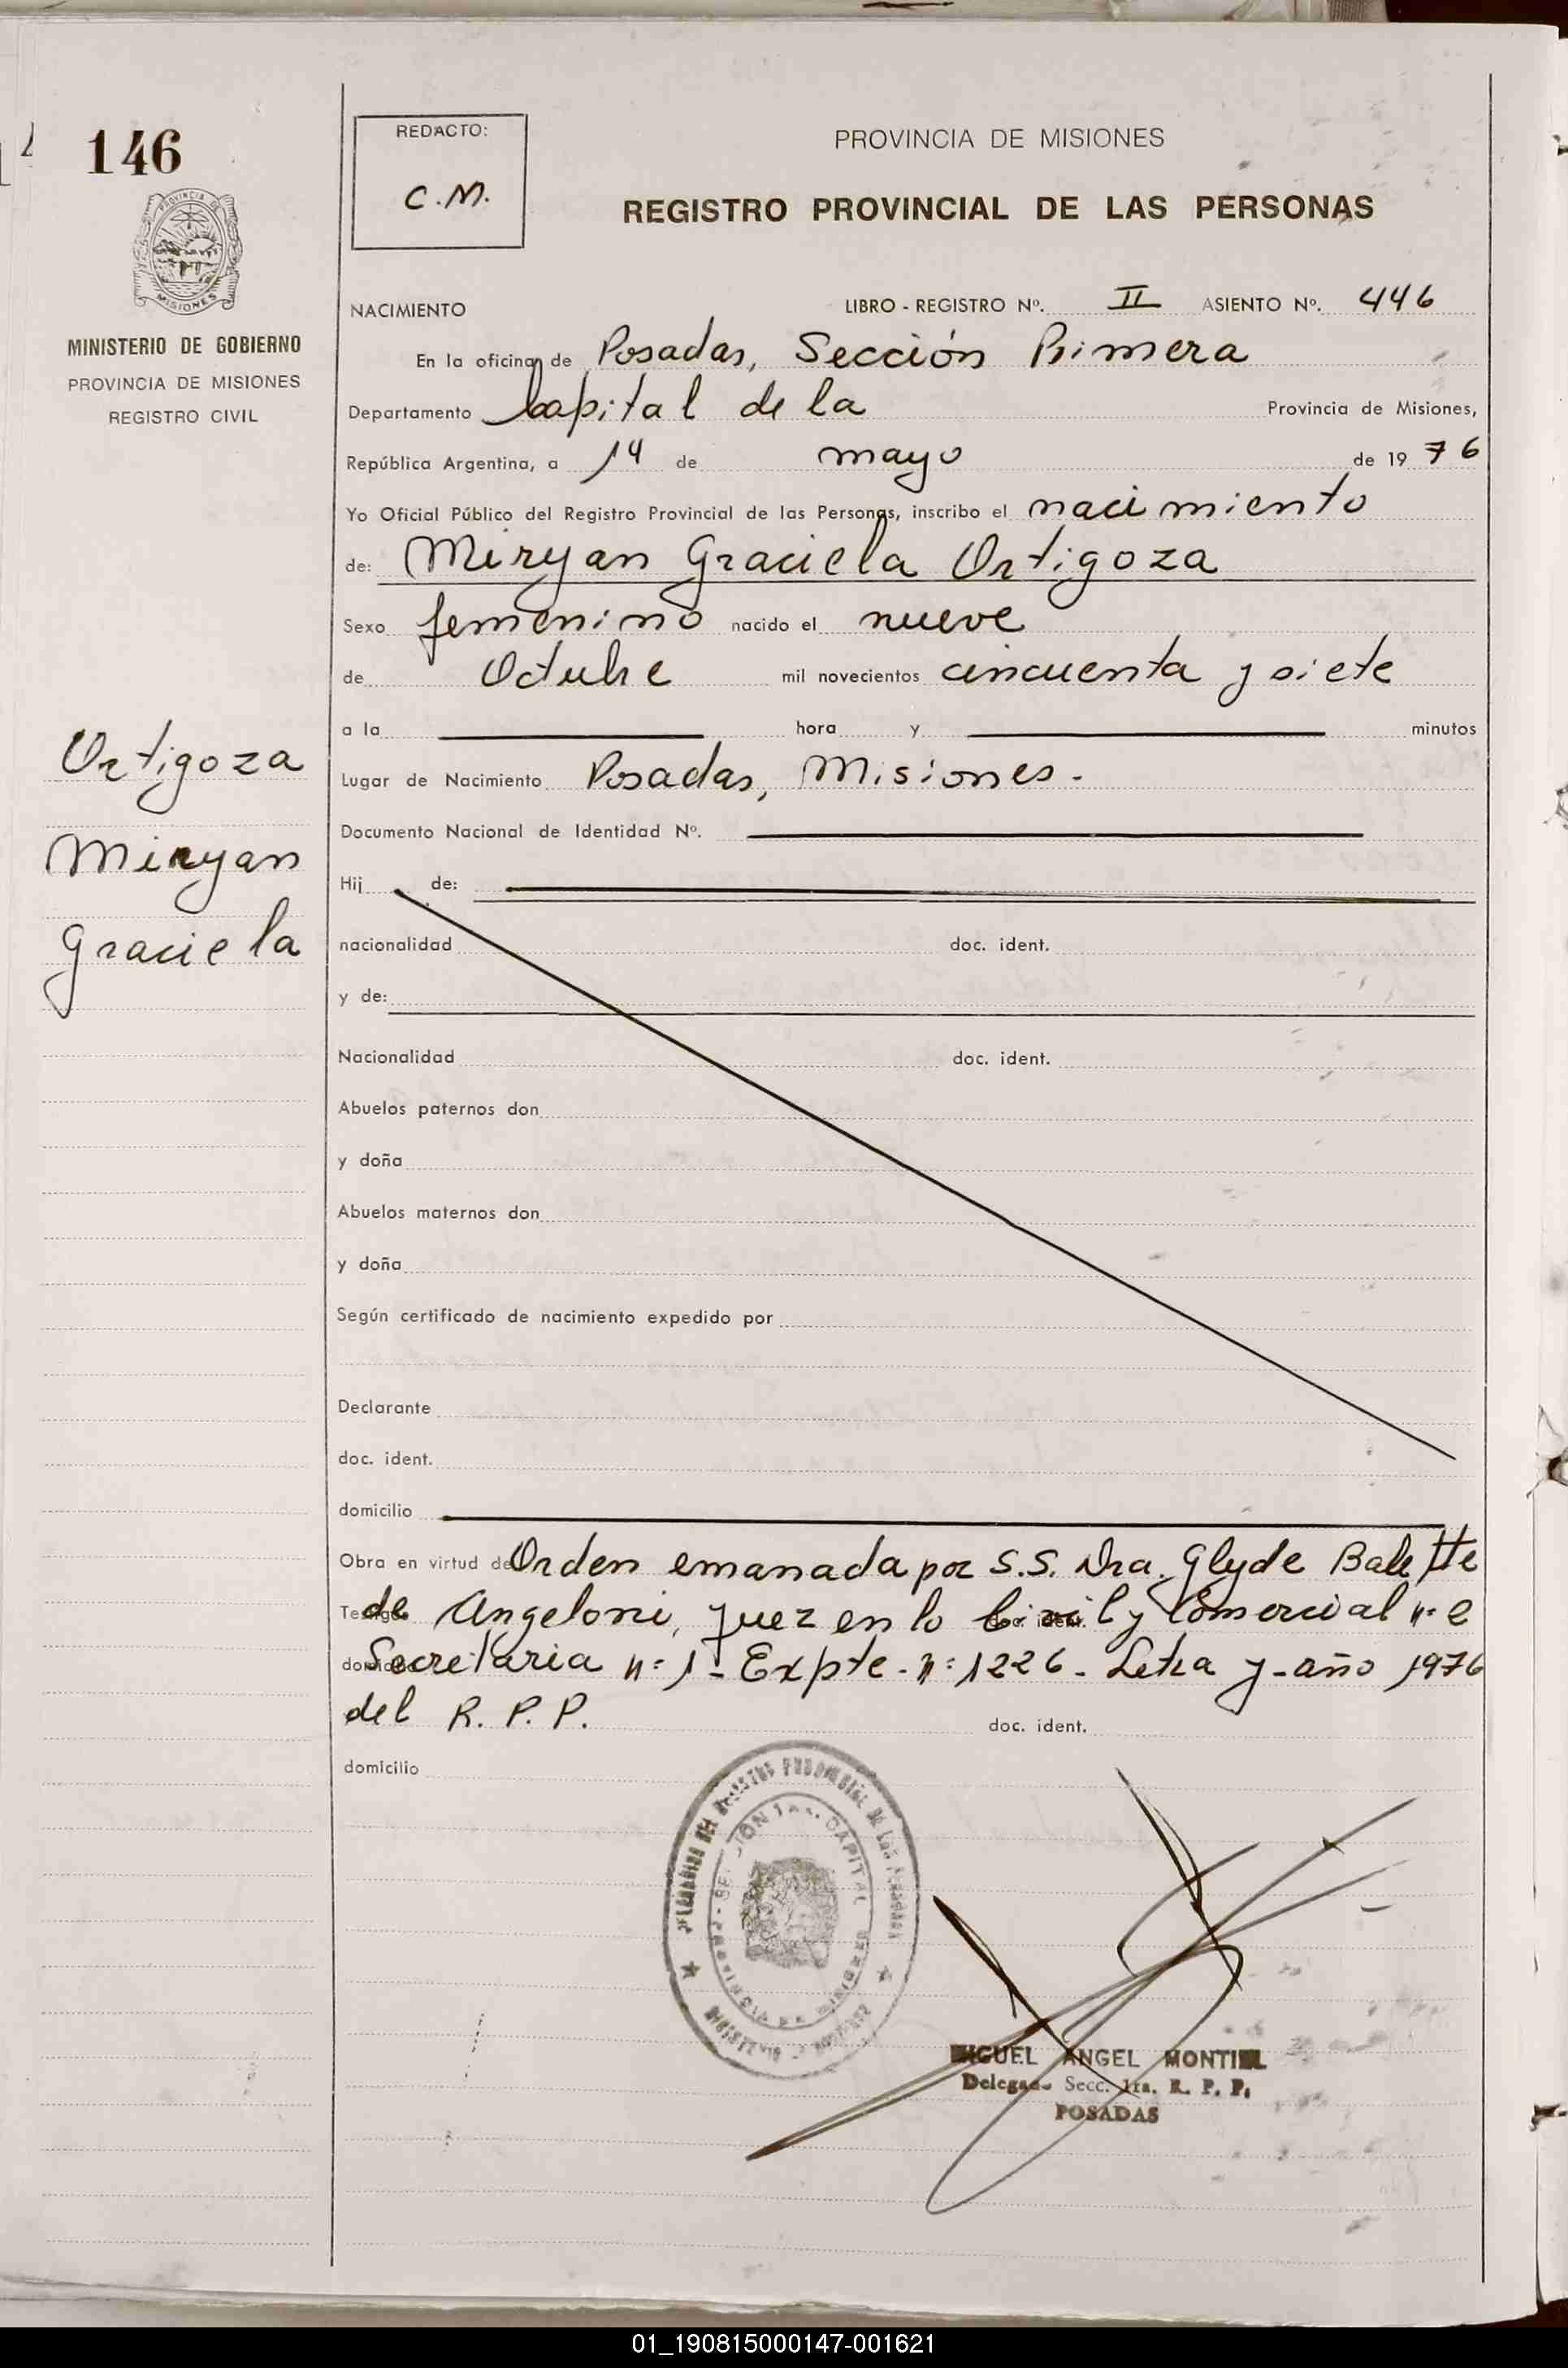 146
PROVINCIA DE
MISIONES
MINISTERIO DE GOBIERNO
PROVINCIA DE MISIONES
REGISTRO CIVIL
Ortigoza
Miryan
Graciela
REDACTO:
C.M.
PROVINCIA DE MISIONES
REGISTRO PROVINCIAL DE LAS PERSONAS
NACIMIENTO LIBRO - REGISTRO Nº. II ASIENTO Nº. 446
En la oficina de Posadas, Sección Primera
Departamento Capital de la Provincia de Misiones,
República Argentina, a 14 de mayo de 19 76
Yo Oficial Público del Registro Provincial de las Personas, inscribo el nacimiento
de: Miryan Graciela Ortigoza
Sexo femenino nacido el nueve
de Octubre mil novecientos cincuenta y siete
a la hora y minutos
Lugar de Nacimiento Posadas, Misiones.-
Documento Nacional de Identidad Nº.
Hij de:
nacionalidad doc. ident.
y de:
Nacionalidad doc. ident.
Abuelos paternos don
y doña
Abuelos maternos don
y doña
Según certificado de nacimiento expedido por
Declarante
doc. ident.
domicilio
Obra en virtud de Orden emanada por S.S. Dra. Glyde
de Angeloni, Juez en lo Civil y Comercial
Secretaria nº 1 - Expte. nº 1226 - Letra y - año 1976
del R. P. P. doc. ident.
domicilio
MIGUEL ANGEL MONTIEL
Delegado Secc. 1ra. R. P. P.
POSADAS
01_190815000147-001621